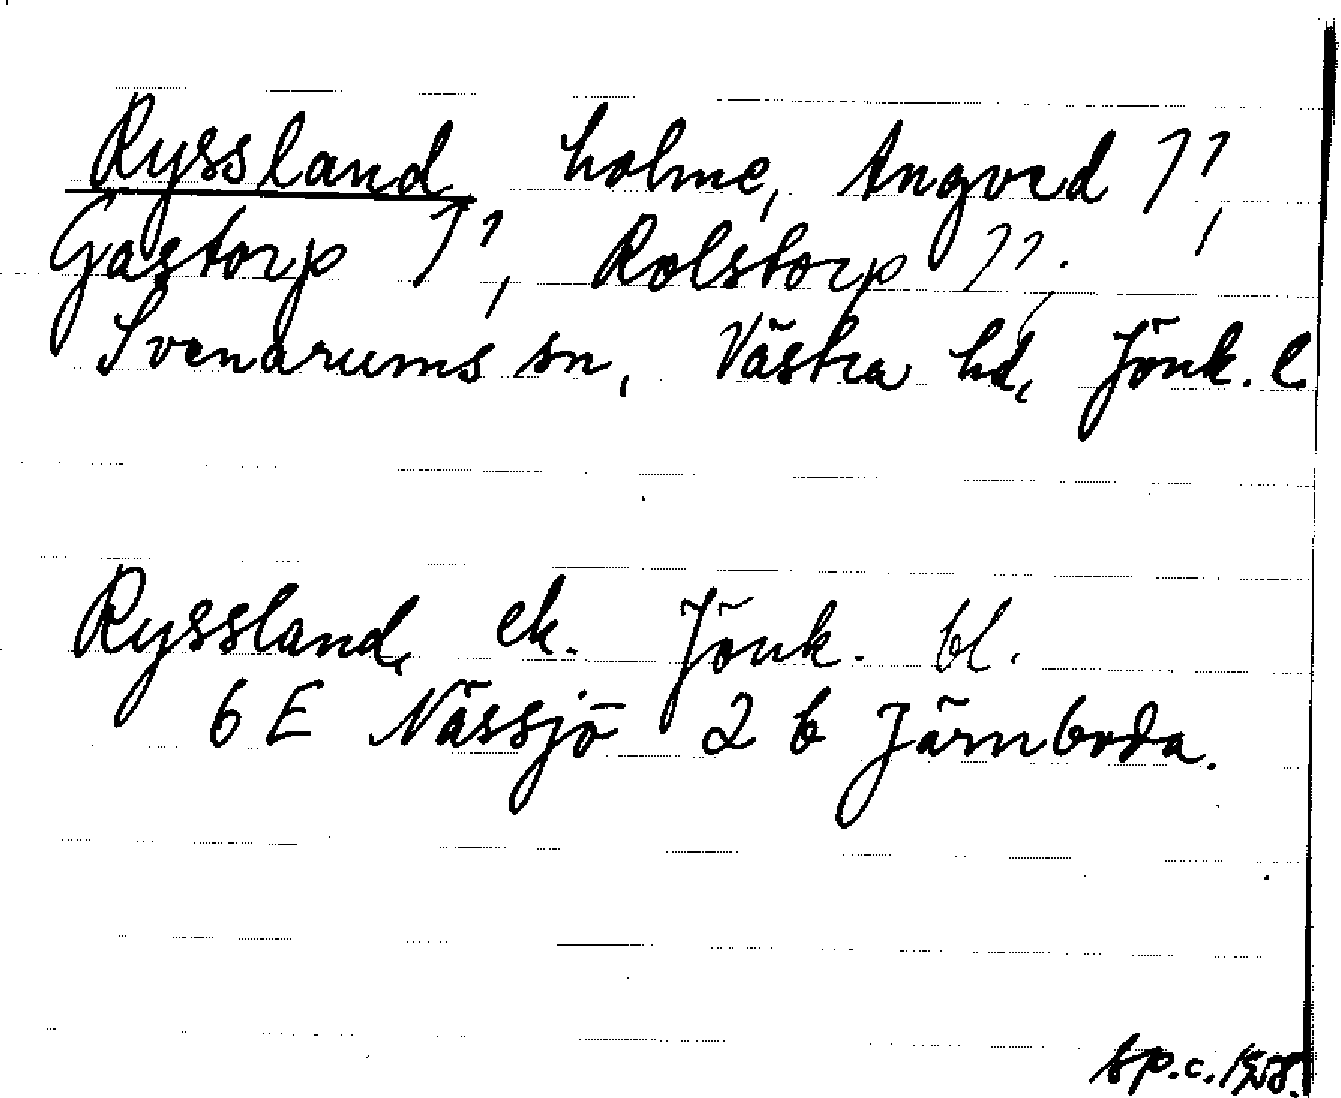 Ryssland holme, Angved 77,
Gastorp 77, Rolstorp 77.
Svenarums sn, Västra hd, Jönk. l.
Ryssland, ek. Jönk. bl.
6 E Nässjö 2 b Järnboda.
sp.c. 1958.